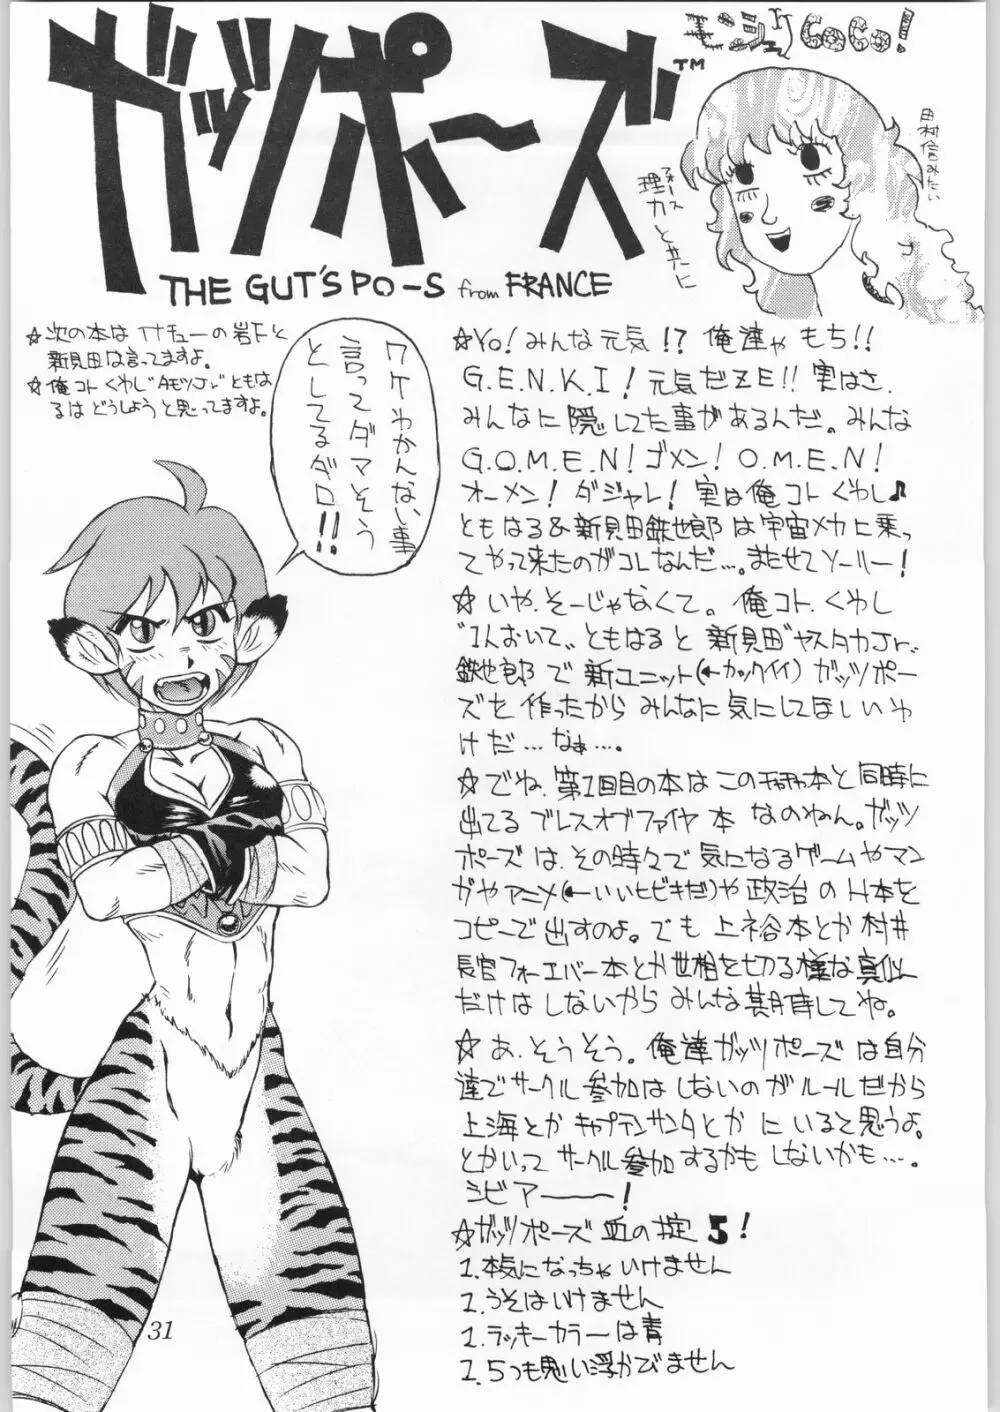 ガッツポーズ
TM
THE GUT'S PO-S from FRANCE
CoCo!
田村信みたい
フォース
理力と共に
☆次の本はイナチューの岩下と
新見田は言ってますよ。
☆俺コトくわし"AモツJr"ともは
るはどうしようと思ってますよ。
ワケわかんない事
言ってダマそう
としてるダロ!!
☆Yo!みんな元気!?俺達ゃもち!!
G.E.N.K.I!元気だZE!!実はさ、
みんなに隠してた事があるんだ。みんな
G.O.M.E.N!ゴメン!O.M.E.N!
オーメン!ダジャレ!実は俺コトくわし♪
ともはる&新見田鉄也郎は宇宙メカに乗っ
てやって来たのがコレなんだ…。またせてソーリー!
☆いや、そーじゃなくて。俺コト、くわし
"1人おいて"ともはると新見田"ヤスタカJr."
鉄也郎で新ユニット(←カックイイ)ガッツポー
ズを作ったからみんなに気にしてほしいわ
けだ…なぁ…。
☆でね、第1回目の本はこの本と同時に
出てるブレスオブファイヤ本なのねん。ガッツ
ポーズは、その時々で気になるゲームやマン
ガやアニメ(←いいヒビキだ)や政治のH本を
コピーで出すのよ。でも上祐本とか村井
長官フォーエバー本とか世相を切る様な真似
だけはしないからみんな期待してね。
☆あ、そうそう。俺達ガッツポーズは自分
達でサークル参加はしないのがルールだから
上海とかキャプテンサンタとかにいると思うよ。
とかいってサークル参加するかもしないかも…。
シビアーーー!
☆ガッツポーズ血の掟5!
1.本気になっちゃいけません
1.うそはいけません
1.ラッキーカラーは青
1.5つも思い浮かびません
31